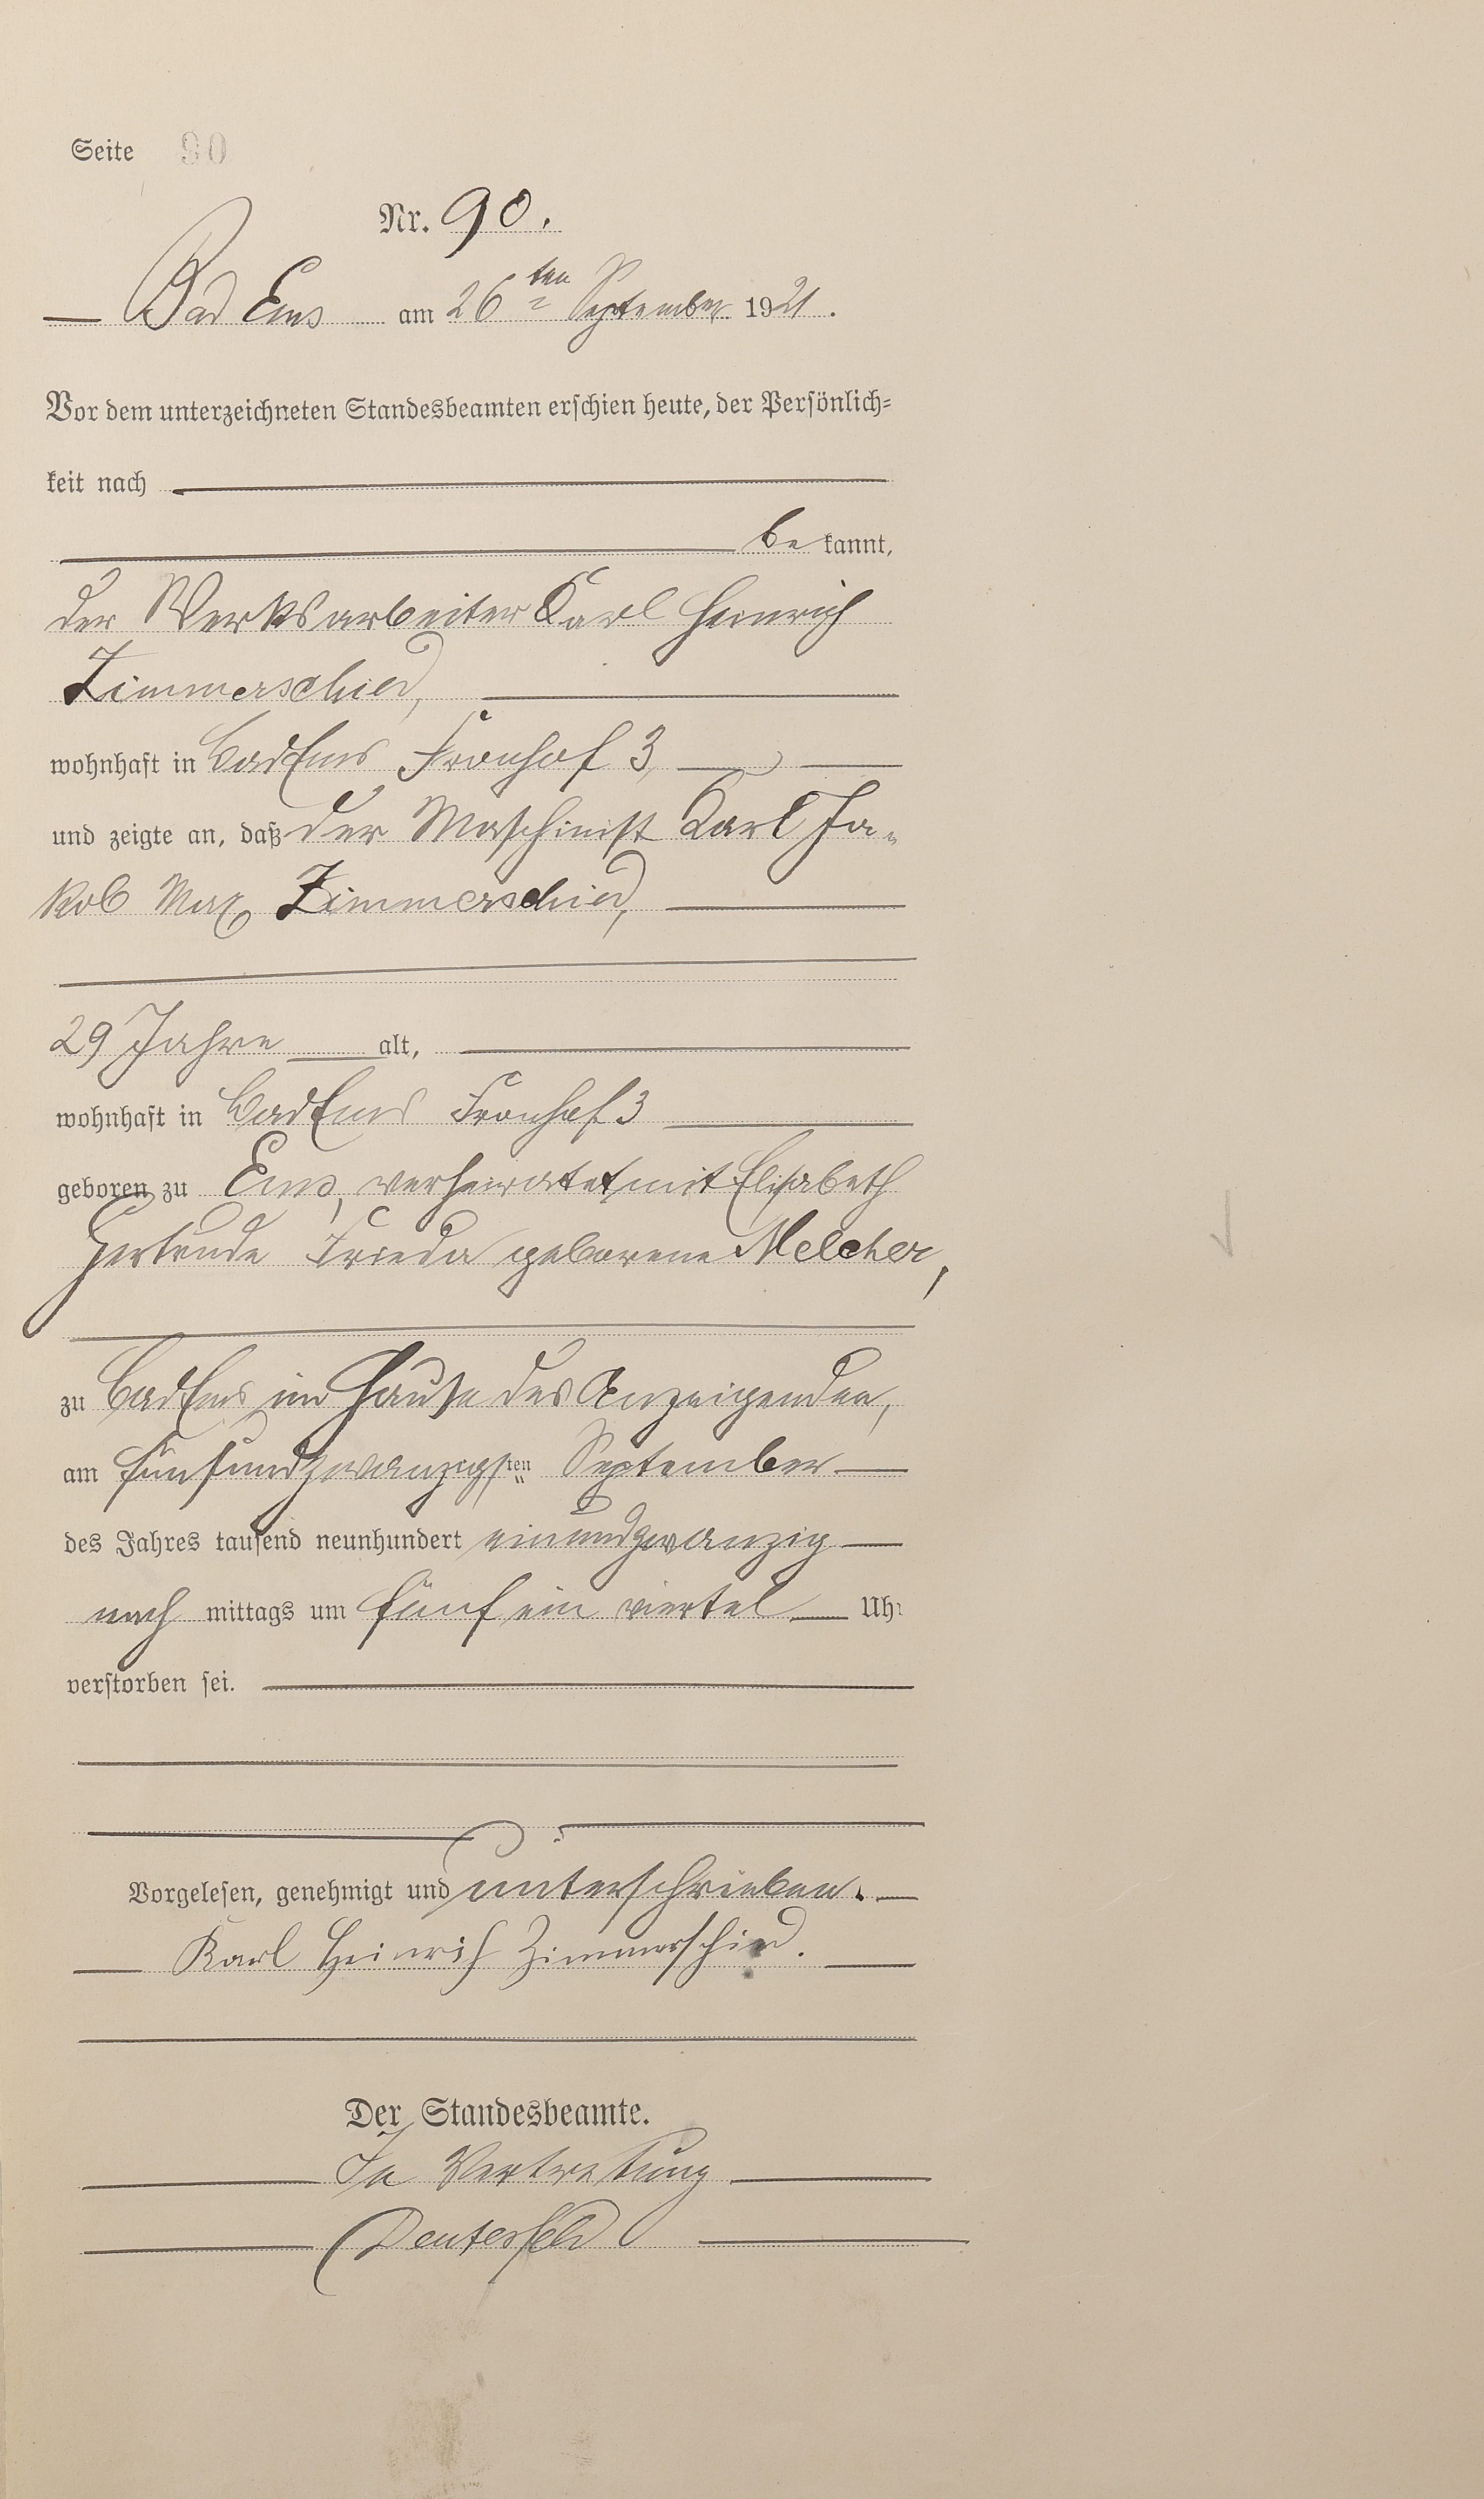 Seite 90
Nr. 90.
Bad Ems am 26ten September 1921.
Vor dem unterzeichneten Standesbeamten erschien heute, der Persönlich-
keit nach
be kannt,
der Werksarbeiter Karl Heinrich
Zimmerschied,
wohnhaft in Bad Ems Fronhof 3,
und zeigte an, daß der Maschinist Karl Ja-
kob Max Zimmerschied,
29 Jahre alt,
wohnhaft in Bad Ems Fronhof 3
geboren zu Ems, verheiratet mit Elisabeth
Gertrude Frieda geborene Melcher,
zu Bad Ems im Hause des Anzeigenden,
am fünfundzwanzigsten September
des Jahres tausend neunhundert einundzwanzig
nach mittags um fünf ein viertel Uhr
verstorben sei.
Vorgelesen, genehmigt und unterschrieben.
Karl Heinrich Zimmerschied.
Der Standesbeamte.
In Vertretung